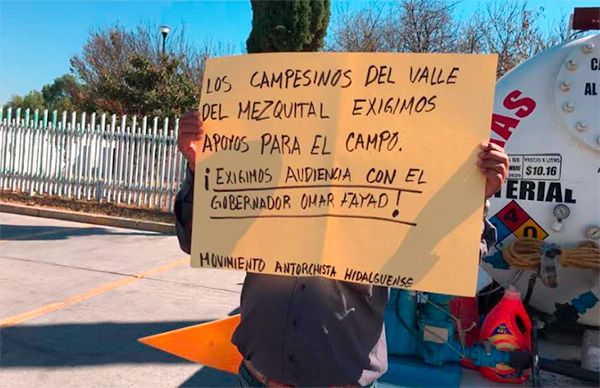 LOS CAMPESINOS DEL VALLE
DEL MEZQUITAL EXIGIMOS
APOYOS PARA EL CAMPO.
¡EXIGIMOS AUDIENCIA CON EL
GOBERNADOR OMAR FAYAD!
MOVIMIENTO ANTORCHISTA HIDALGUENSE
AL
AS
PRECIO X LITRO
$10.16
ERIAL
4
0